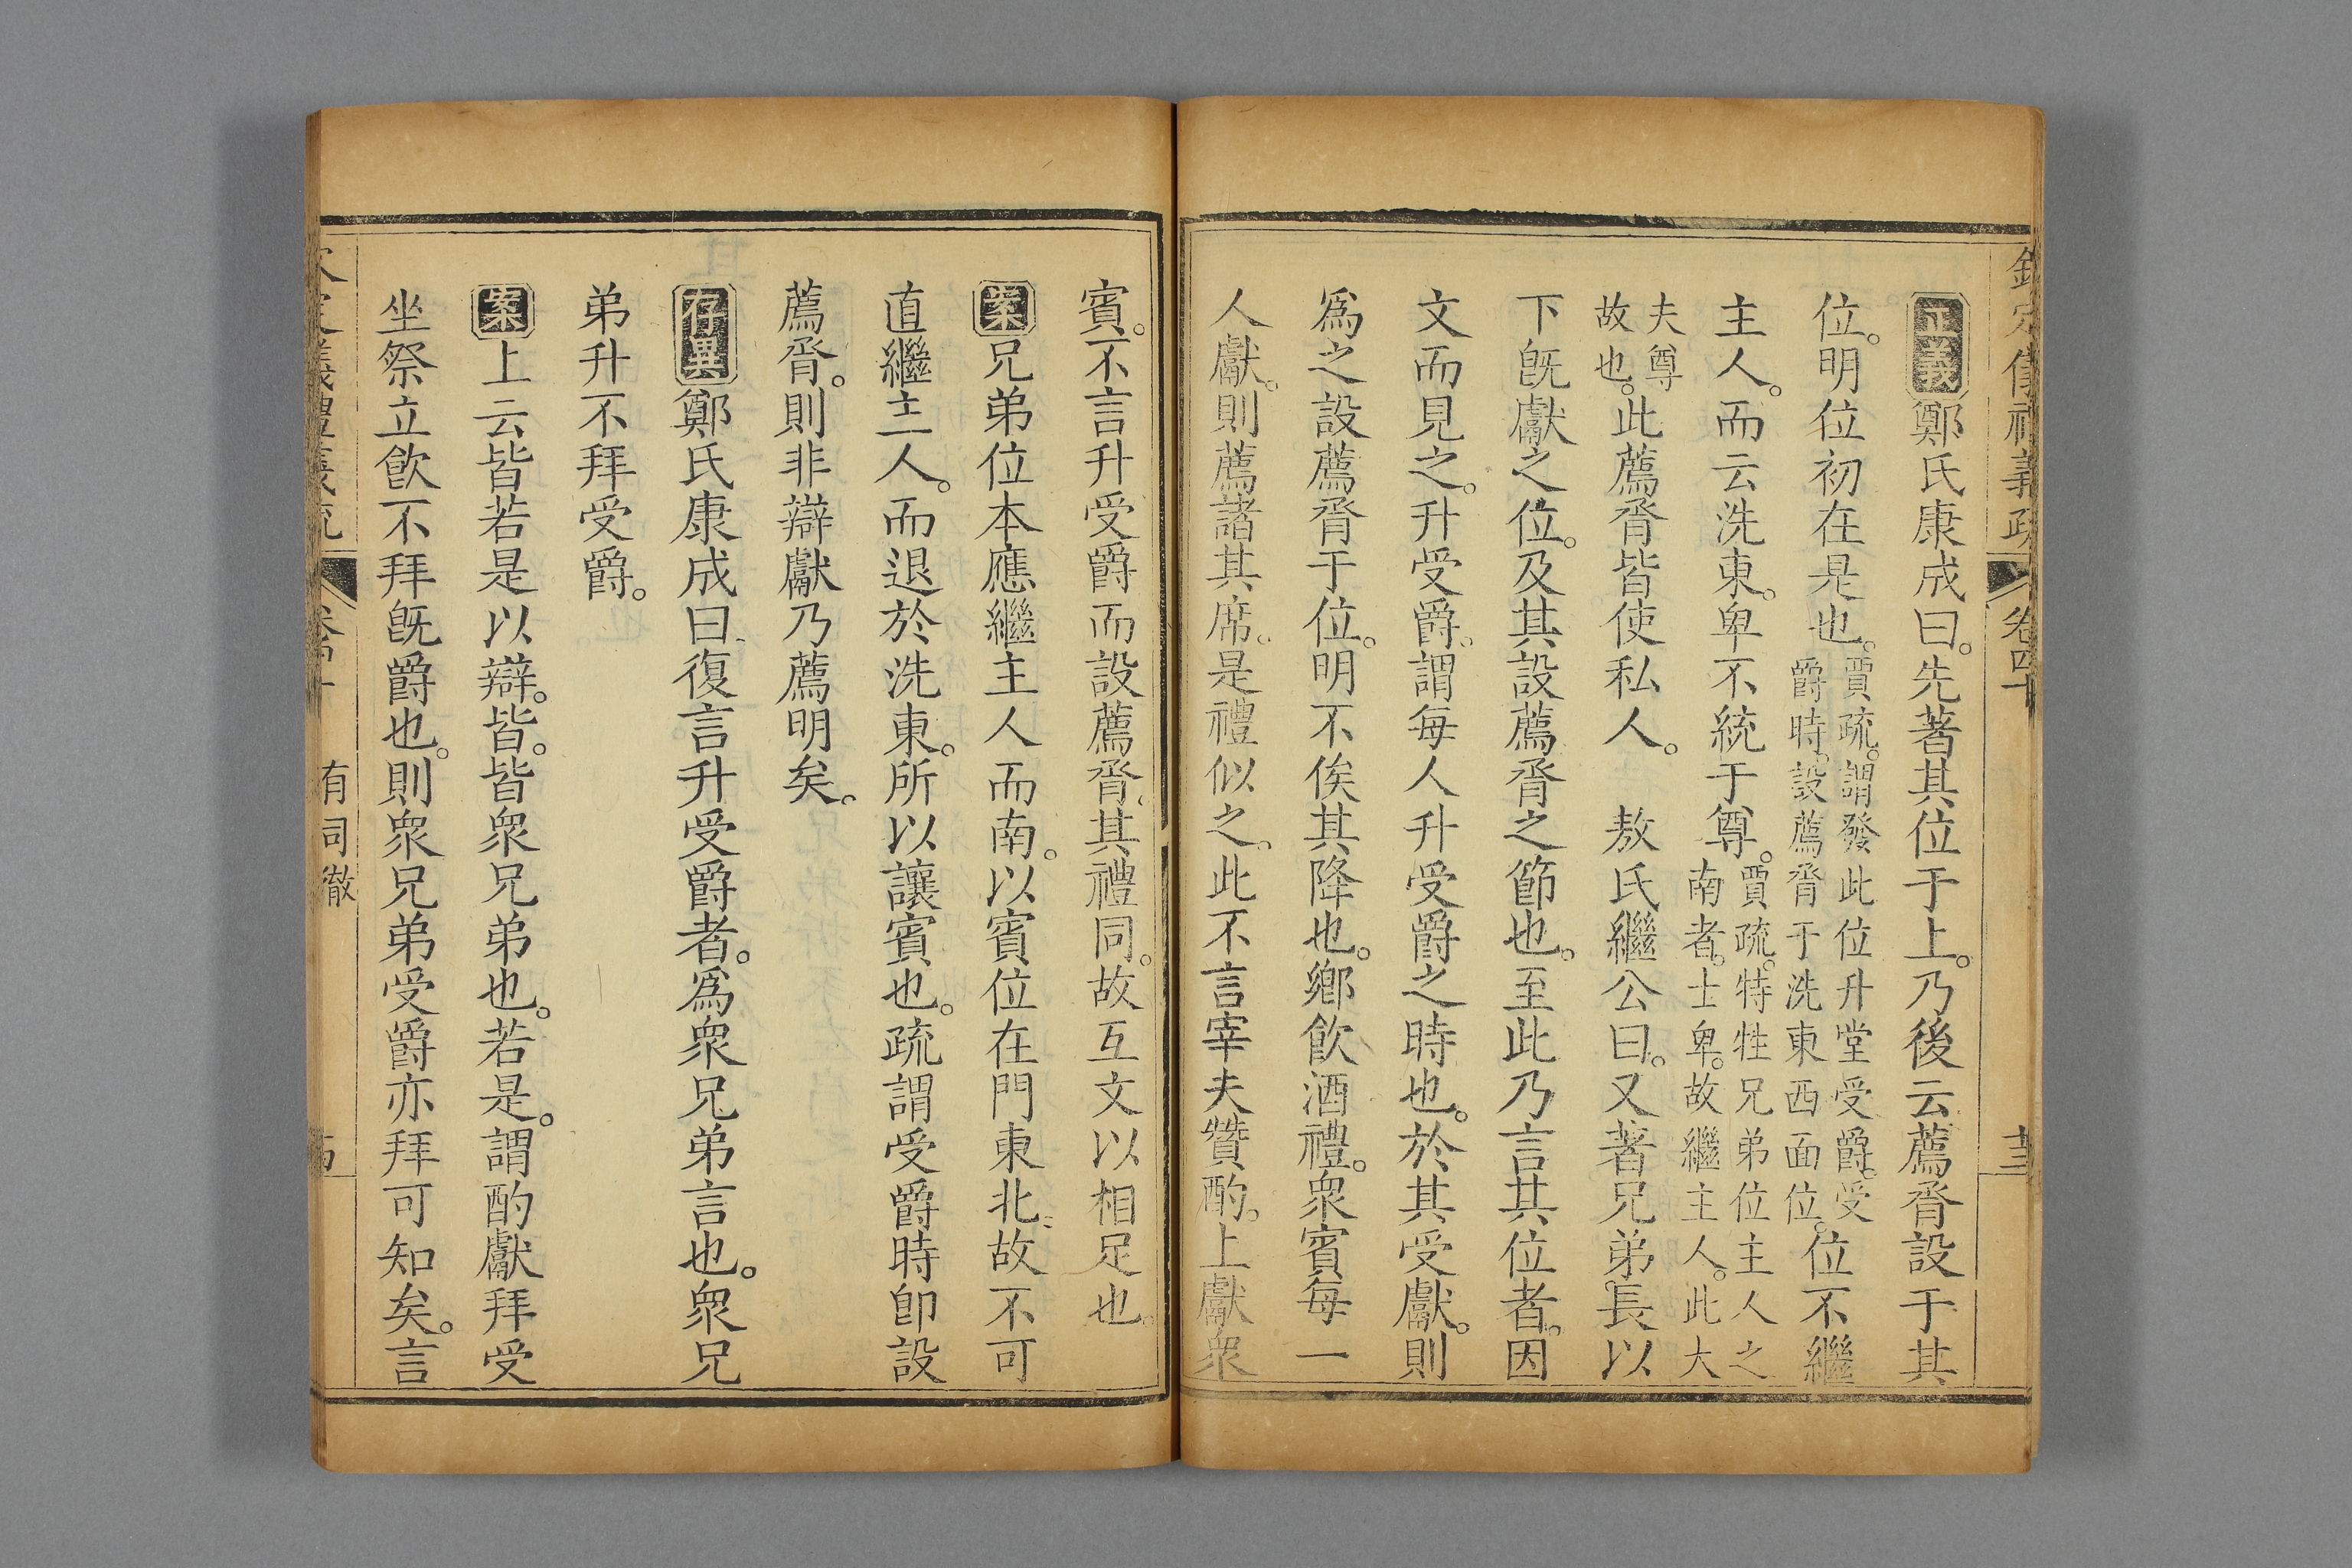 欽定儀禮義疏 卷四十 
正義鄭氏康成曰。先著其位于上。乃後云薦脀設于其
位。明位初在是也。賈疏。謂發此位升堂受爵。受爵時。設薦脀于洗東西面位。位不繼
主人。而云洗東。卑不統于尊。賈疏。特牲兄弟位主人之南者。士卑。故繼主人。此大
夫尊故也。此薦脀皆使私人。 敖氏繼公曰。又著兄弟長以
下旣獻之位。及其設薦脀之節也。至此乃言其位者。因
文而見之。升受爵。謂每人升受爵之時也。於其受獻。則
爲之設薦脀于位。明不俟其降也。鄉飲酒禮。衆賓每一
人獻。則薦諸其席。是禮似之。此不言宰夫贊酌。上獻衆
賓。不言升受爵而設薦脀。其禮同。故互文以相足也。
案兄弟位本應繼主人而南。以賓位在門東北。故不可
直繼主人。而退於洗東。所以讓賓也。疏謂受爵時卽設
薦脀。則非辯獻乃薦明矣。
存異鄭氏康成曰。復言升受爵者。爲衆兄弟言也。衆兄
弟升不拜受爵。
案上云皆若是以辯。皆。皆衆兄弟也。若是。謂酌獻拜受
坐祭立飲不拜旣爵也。則衆兄弟受爵亦拜可知矣。言
有司徹